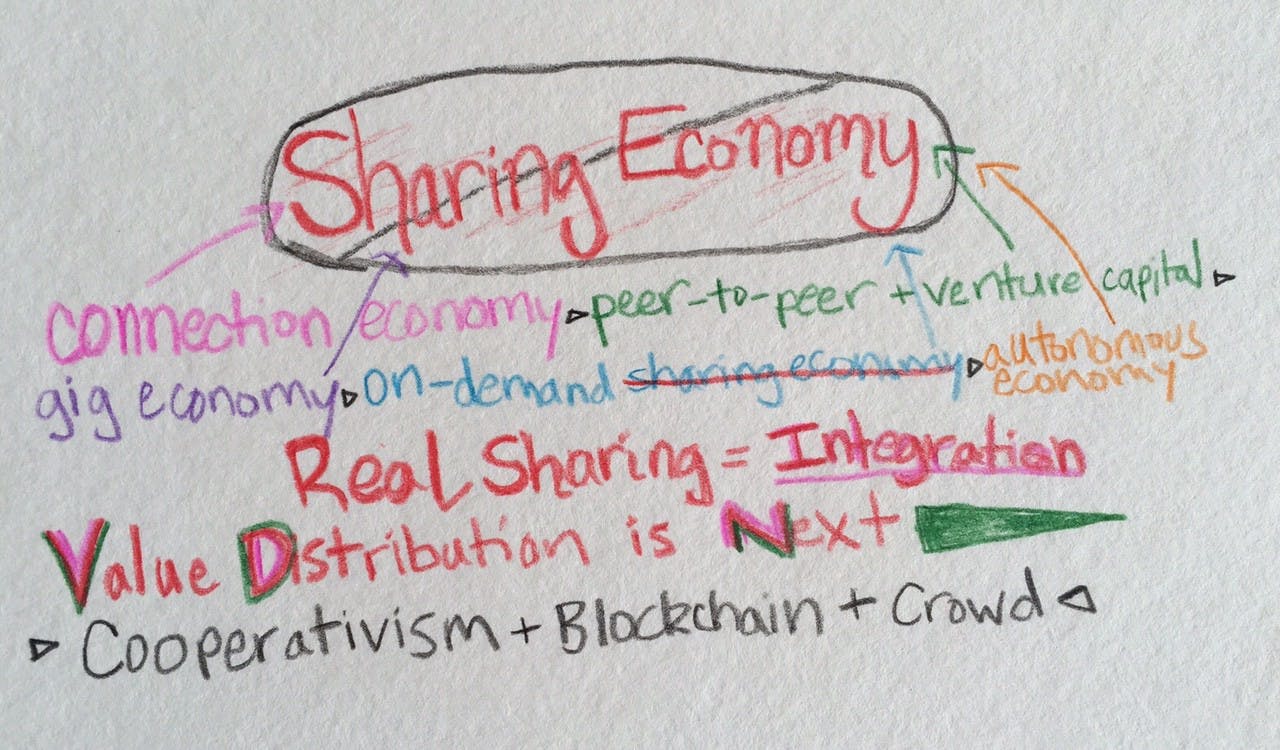 Sharing Economy
connection economy ▹ peer-to-peer + venture capital ▹
gig economy ▹ on-demand sharing economy ▹ autonomous economy
Real Sharing = Integration
Value Distribution is Next
▹ Cooperativism + Blockchain + Crowd ◃